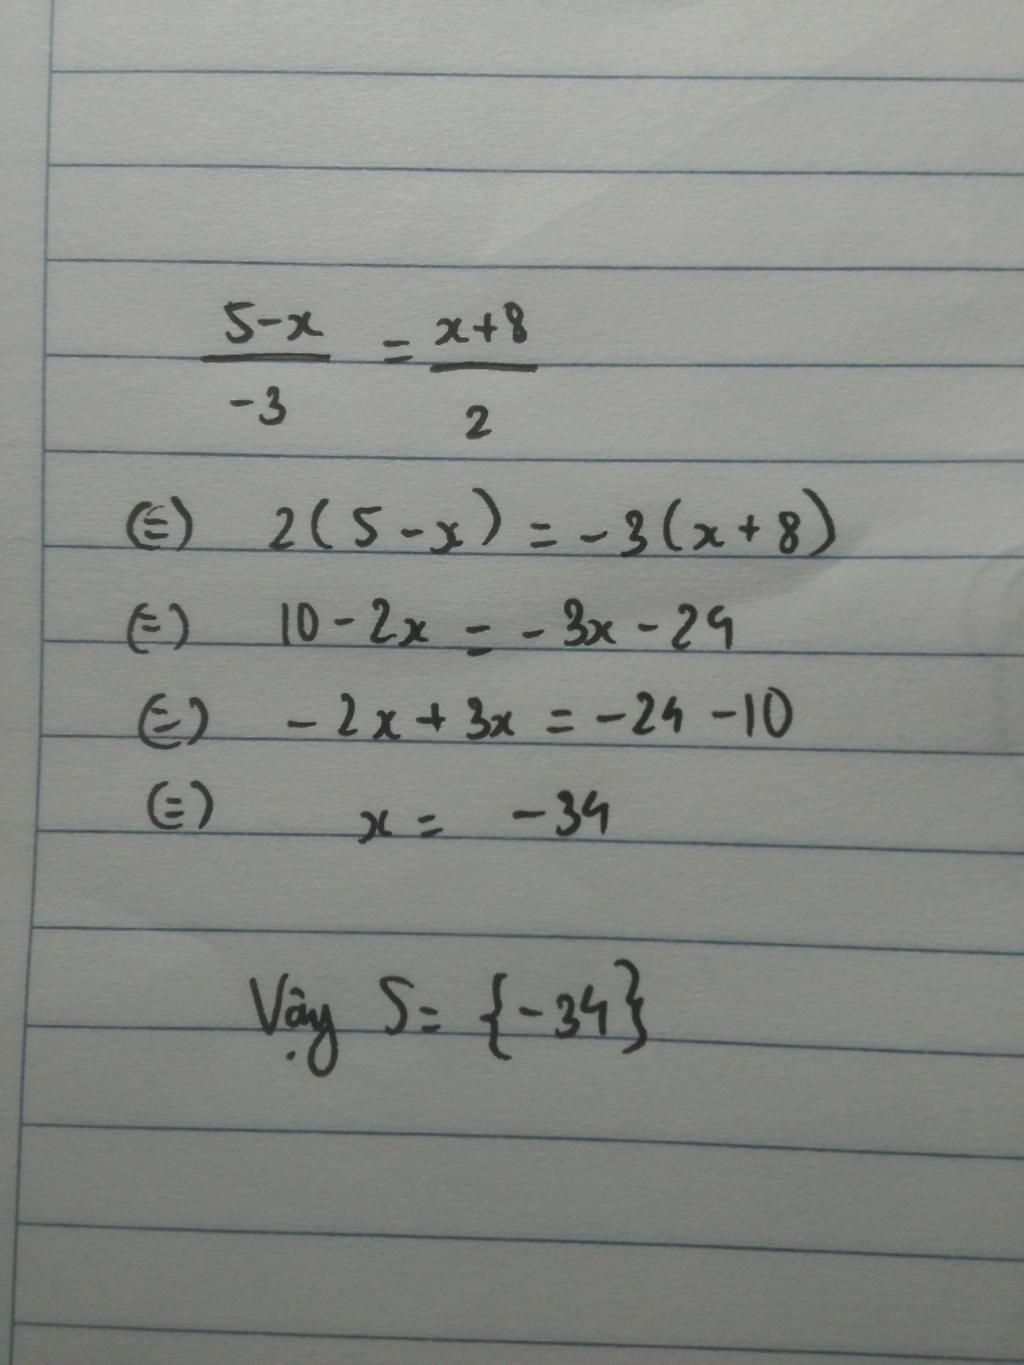 5-x / -3 = x+8 / 2
(=) 2(5-x) = -3(x+8)
(=) 10-2x = -3x-24
(=) -2x+3x = -24-10
(=) x = -34
Vậy S= {-34}